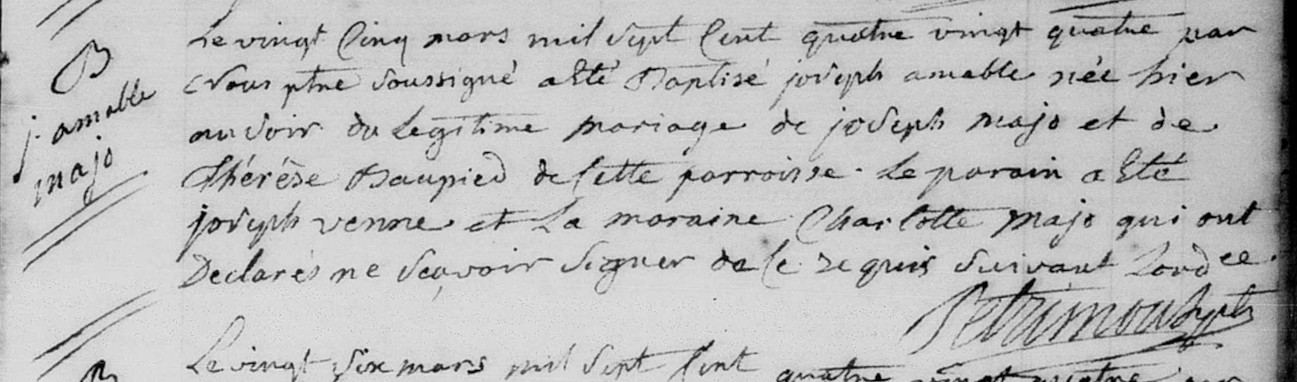 B
j. amable
majo
Le vingt Cinq mars mil sept Cent quatre vingt quatre par
Nous ptre soussigné a Eté Baptisé joseph amable née hier
au soir du Legitime mariage de joseph majo et de
Thérése Baupied de Cette parroisse. Le parain a Eté
joseph venne et La maraine Charlotte majo qui ont
Declarés ne sçavoir signer de Ce requis suivant Lordce.
Petrimoulx ptr
Le vingt six mars mil sept Cent quatre vingt quatre par
B